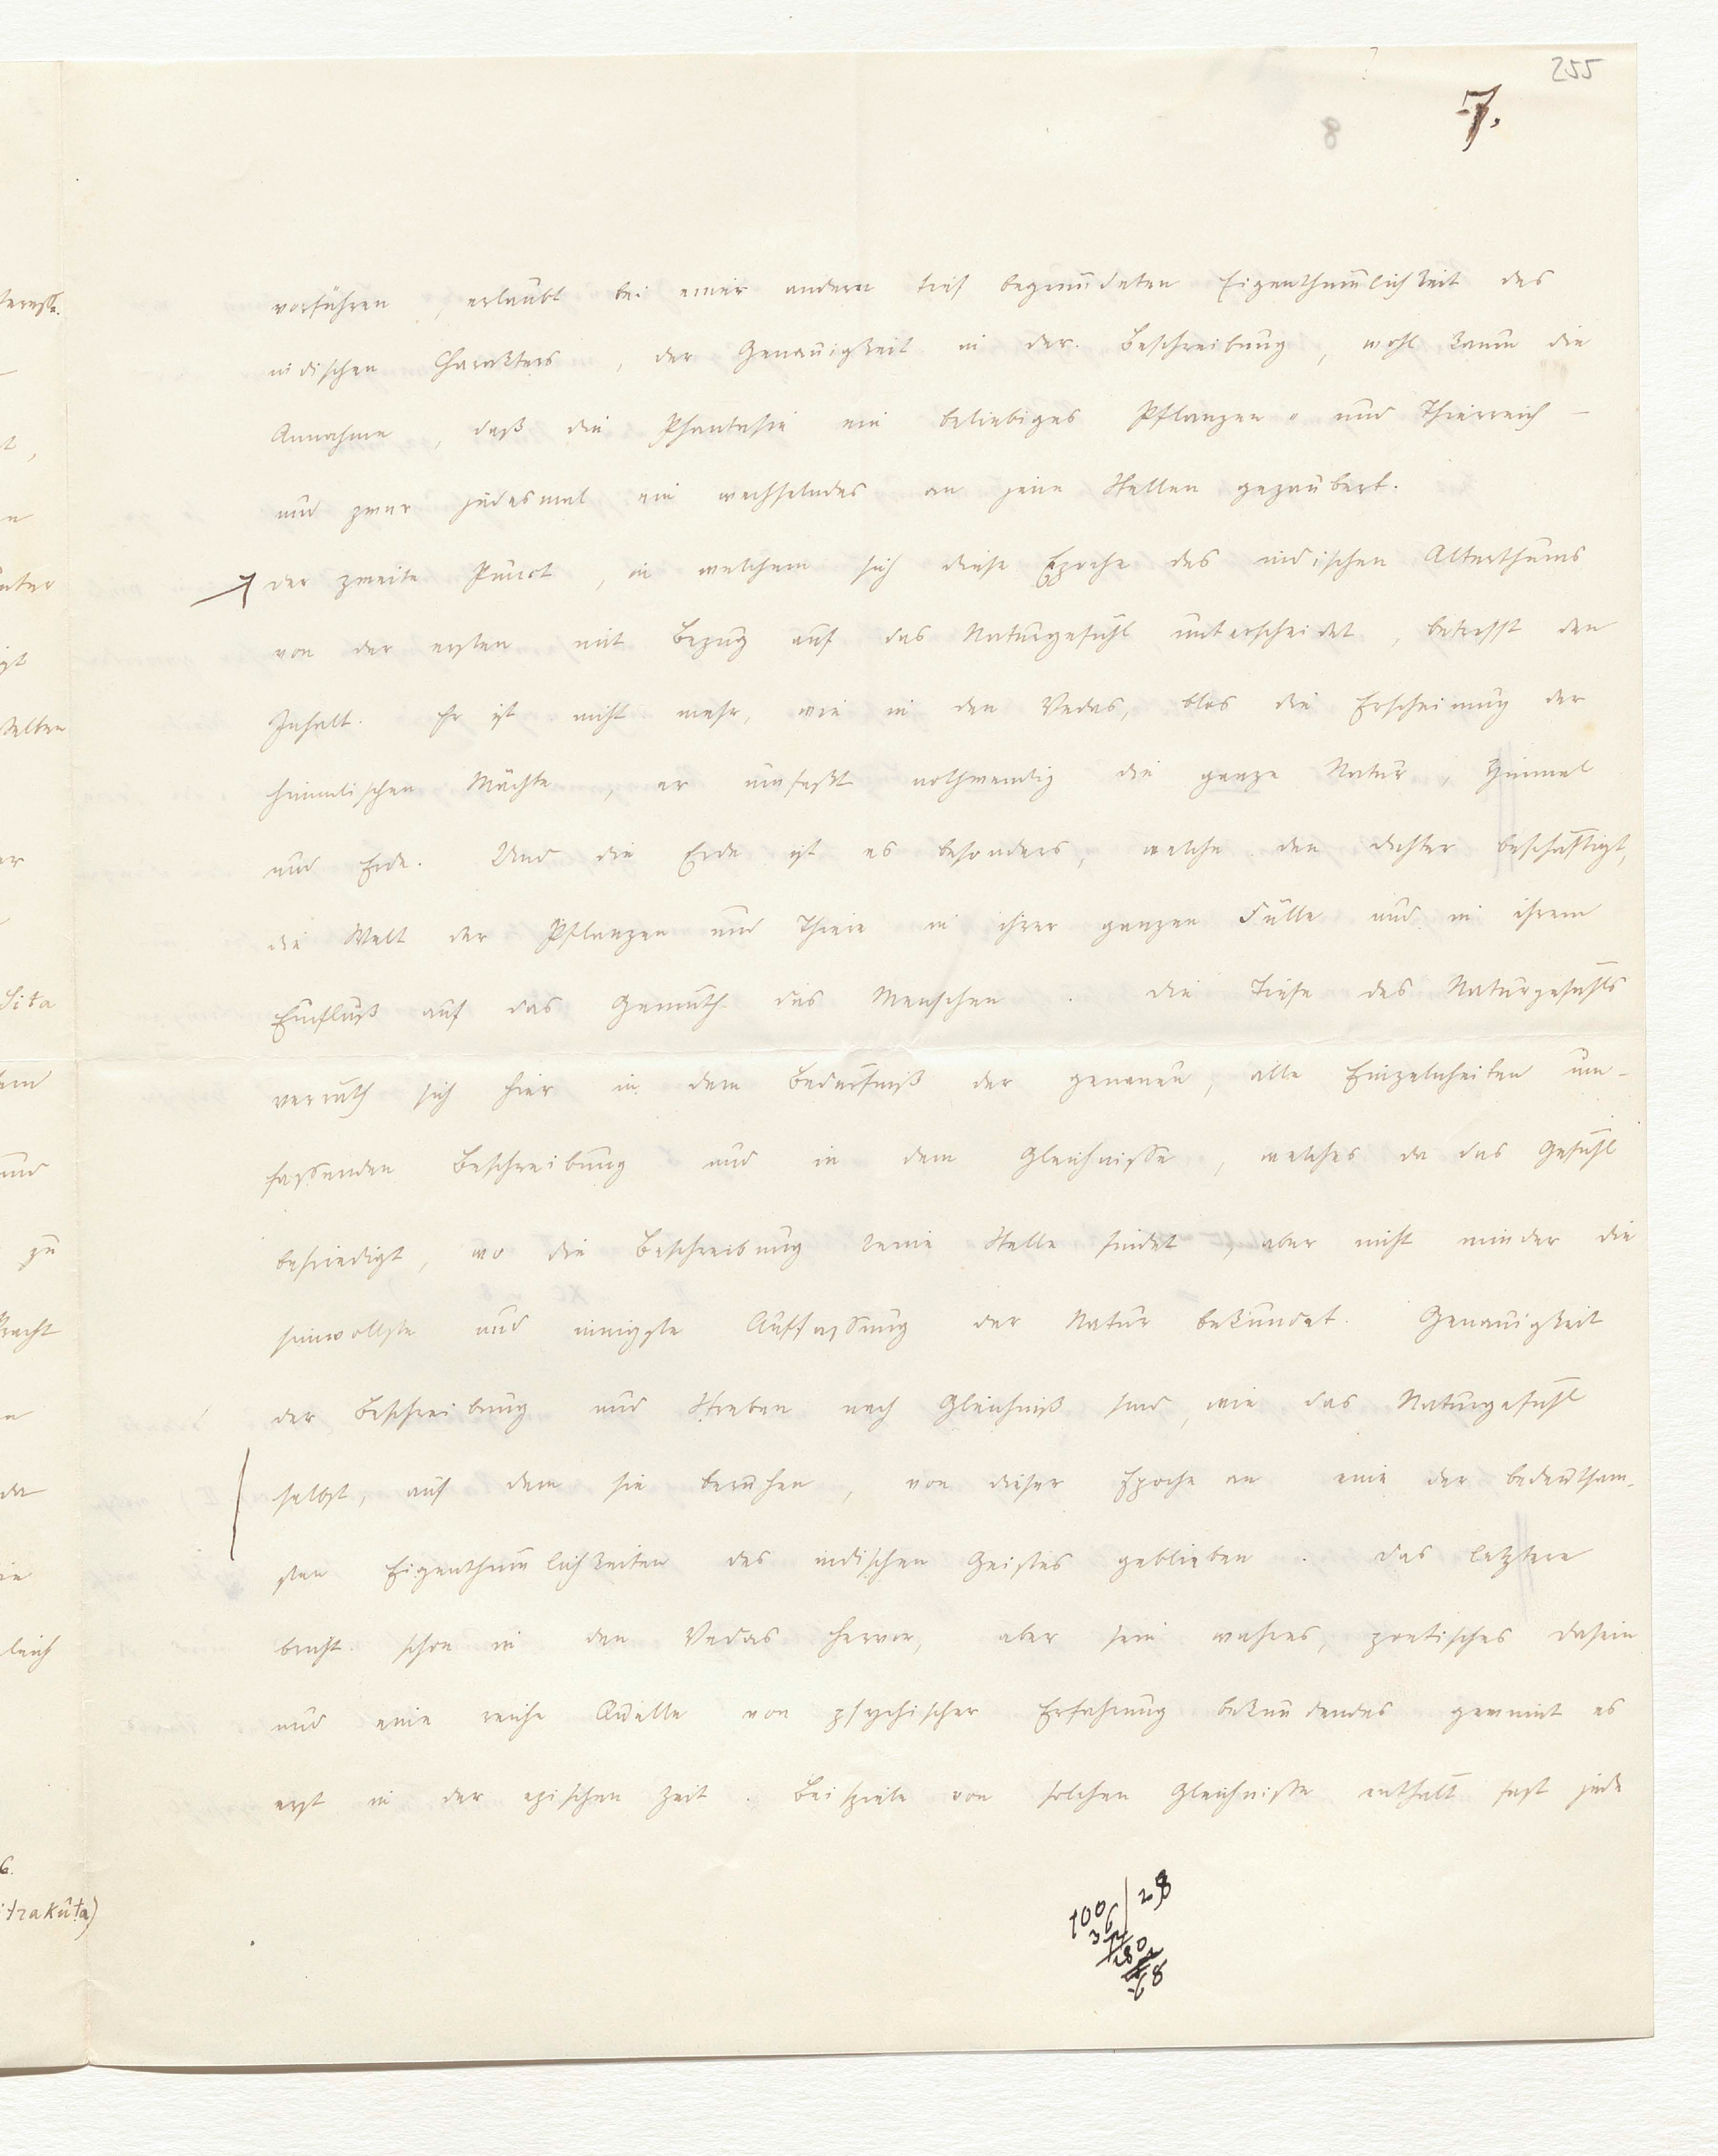 255
7.
vorführen, erlaubt bei einer andern tief begründeten Eigenthümlichkeit des
indischen Charakters, der Genauigkeit in der Beschreibung, wohl kaum die
Annahme, daß die Phantasie ein beliebiges Pflanzen- und Thierreich –
und zwar jedesmal ein wechselndes an jene Stellen gezaubert.
der zweite Punct, in welchem sich diese Epoche des indischen Alterthums
von der ersten mit Bezug auf das Naturgefühl unterscheidet, betrifft den
Inhalt. Er ist nicht mehr, wie in den Vedas, blos die Erscheinung der
himmlischen Mächte, er umfaßt nothwendig die ganze Natur, Himmel
und Erde. Und die Erde ist es besonders, welche den Dichter beschäftigt,
die Welt der Pflanzen und Thiere in ihrer ganzen Fülle und in ihrem
Einfluß auf das Gemüth des Menschen. Die Tiefe des Naturgefühls
verräth sich hier in dem Bedürfniß der genauen, alle Einzelnheiten um-
fassenden Beschreibung und in dem Gleichnisse, welches da das Gefühl
befriedigt, wo die Beschreibung keine Stelle findet, aber nicht minder die
sinnvollste und innigste Auffassung der Natur bekundet. Genauigkeit
der Beschreibung und Streben nach Gleichniß sind, wie das Naturgefühl
selbst, auf dem sie beruhen, von dieser Epoche an eine der bedeutsam-
sten Eigenthümlichkeiten des indischen Geistes geblieben. Das letztere
bricht schon in den Vedas hervor, aber sein wahres, poetisches Dasein
und eine reiche Quelle von psychischer Erfahrung bekundendes gewinnt es
erst in der epischen Zeit. Beispiele von solchen Gleichnisse enthält fast jede
100 | 28
36
280
68
Sita
und
zu
itrakûta)